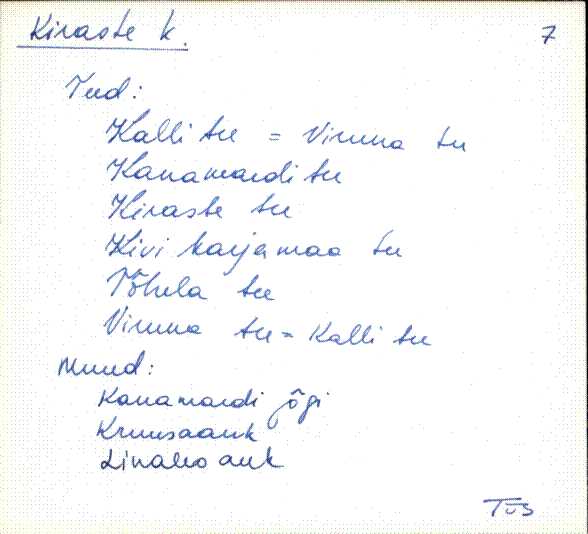 Kiraste k. 7
Teed:
Kalli tee = Viruna tee
Kanamardi tee
Kiraste tee
Kivi karjamaa tee
Tõhela tee
Viruna tee = Kalli tee
Muud:
Kanamardi jõgi
Kruusaauk
Linaleo auk